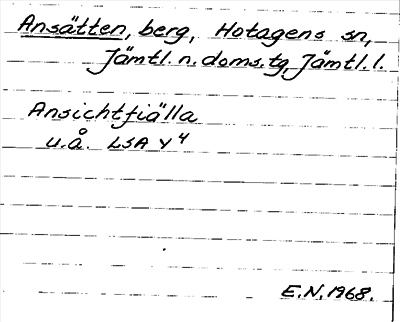 Ansätten, berg, Hotagens sn,
Jämtl. n. doms.tg, Jämtl. l.
Ansichtfiälla
u.å. LSA Y 4
E.N. 1968.